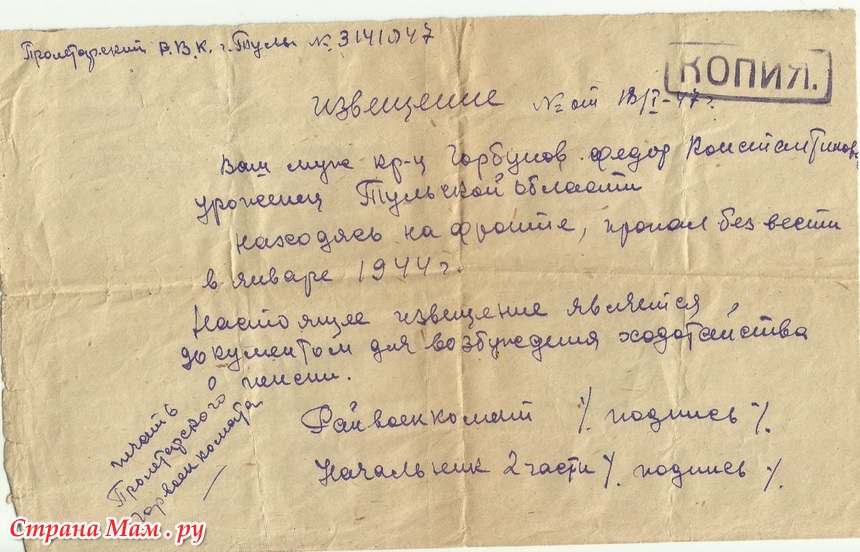 Пролетарский Р.В.К. г. Тулы № 3141047
КОПИЯ.
извещение № от 13/I-47 г.
Ваш муж кр-ц Горбунов Федор Константинов
уроженец Тульской области
находясь на фронте, пропал без вести
в январе 1944 г.
Настоящее извещение является
документом для возбуждения ходотайства
о пенсии.
Райвоенкомат /. подпись /.
Начальник 2 части /. подпись /.
печать
Пролетарского
Горвоенкомата
Страна Мам.ру